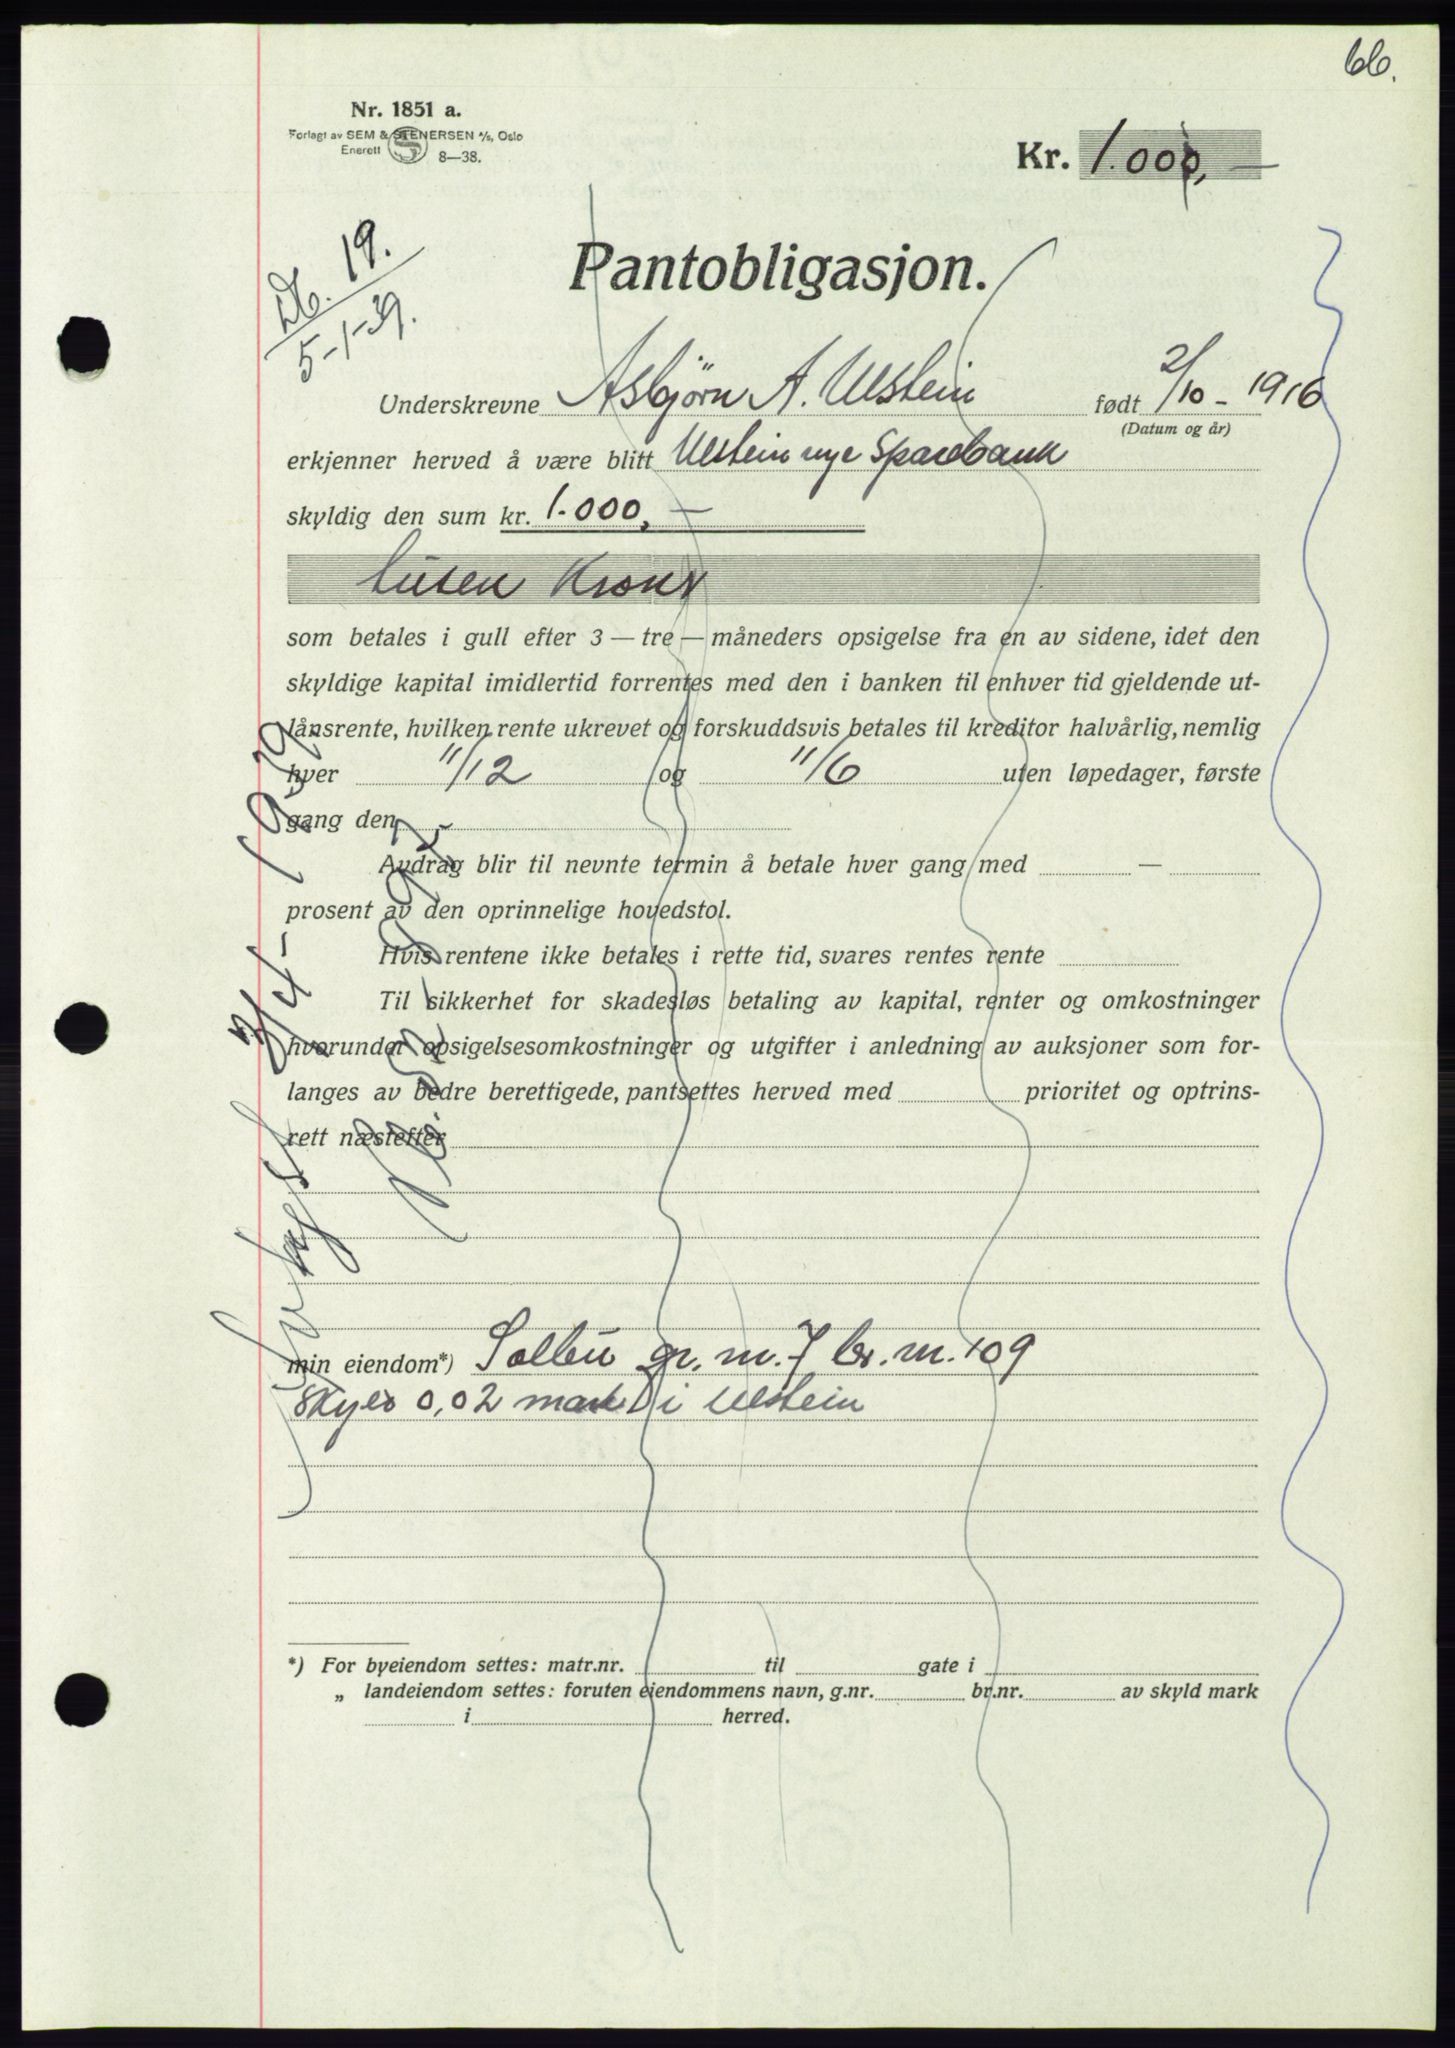 66.
Nr. 1851 a.
Forlagt av SEM & STENERSEN A/S, Oslo
Enerett S 8—38.
Kr. 1.000,—
Db. 19.
5-1-39.
Pantobligasjon.
Underskrevne Asbjørn A. Ulstein født 2/10 - 1916
(Datum og år)
erkjenner herved å være blitt Ulstein nye Sparebank
skyldig den sum kr. 1.000,—
tusen Kroner
som betales i gull efter 3 — tre — måneders opsigelse fra en av sidene, idet den
skyldige kapital imidlertid forrentes med den i banken til enhver tid gjeldende ut-
lånsrente, hvilken rente ukrevet og forskuddsvis betales til kreditor halvårlig, nemlig
hver 11/12 og 11/6 uten løpedager, første
gang den
Avdrag blir til nevnte termin å betale hver gang med —
prosent av den oprinnelige hovedstol.
Hvis rentene ikke betales i rette tid, svares rentes rente
Til sikkerhet for skadesløs betaling av kapital, renter og omkostninger
hvorunder opsigelsesomkostninger og utgifter i anledning av auksjoner som for-
langes av bedre berettigede, pantsettes herved med prioritet og optrins-
rett næstefter
min eiendom*) Solbu gr. nr. 7 br. nr. 109
Skyld 0,02 mark i Ulstein
*) For byeiendom settes: matr.nr. til gate i
„ landeiendom settes: foruten eiendommens navn, g.nr. br.nr. av skyld mark
i herred.